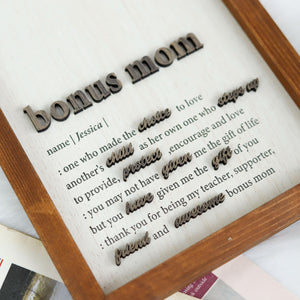 bonus mom
name | Jessica |
: one who made the choice to love
another's child as her own one who steps up
to provide, protect, encourage and love
: you may not have given me the gift of life
but you have given me the gift of you
: thank you for being my teacher, supporter,
friend and awesome bonus mom